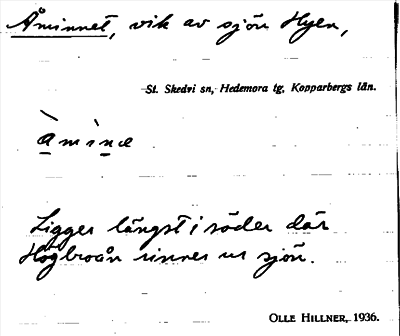 Åminnet, vik av sjön Hyen,
St. Skedvi sn, Hedemora tg, Kopparbergs län.
àmìnæ
Ligger längst i söder där
Högbroån rinner ur sjön.
OLLE HILLNER, 1936.